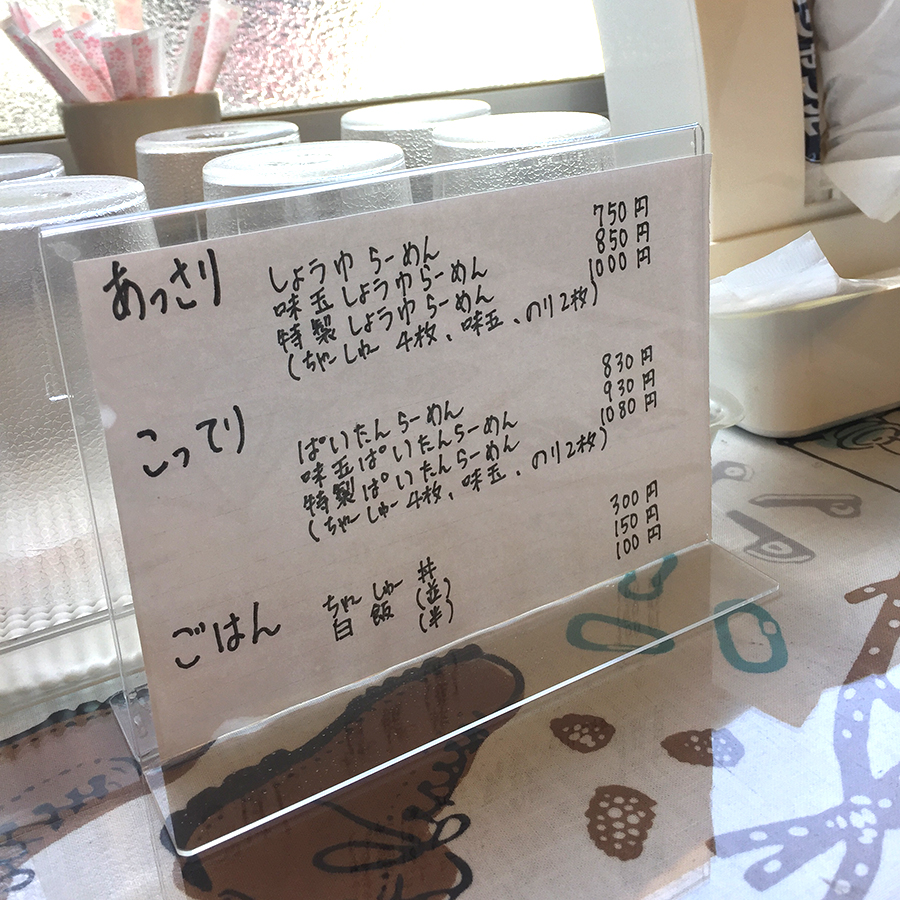 あっさり
しょうゆらーめん 750円
味玉しょうゆらーめん 850円
特製しょうゆらーめん 1000円
(ちゃーしゅー 4枚、味玉、のり2枚)
こってり
ぱいたんらーめん 830円
味玉ぱいたんらーめん 930円
特製ぱいたんらーめん 1080円
(ちゃーしゅー 4枚、味玉、のり2枚)
ごはん
ちゃーしゅー丼 300円
白飯 (並) 150円
(半) 100円